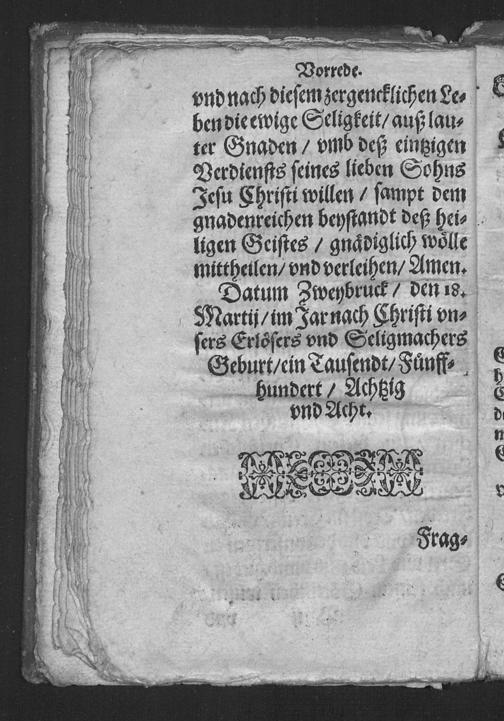 Vorrede.
vnd nach diesem zergencklichen Le⸗
ben die ewige Seligkeit/ auß lau⸗
ter Gnaden / vmb deß eintzigen
Verdiensts seines lieben Sohns
Jesu Christi willen / sampt dem
gnadenreichen beystandt deß hei⸗
ligen Geistes / gnädiglich wölle
mittheilen/ vnd verleihen/ Amen.
Datum Zweybruck / den 18.
Martij/ im Jar nach Christi vn⸗
sers Erlösers vnd Seligmachers
Geburt/ ein Tausendt/ Fünff⸗
hundert / Achtzig
vnd Acht.
Frag⸗